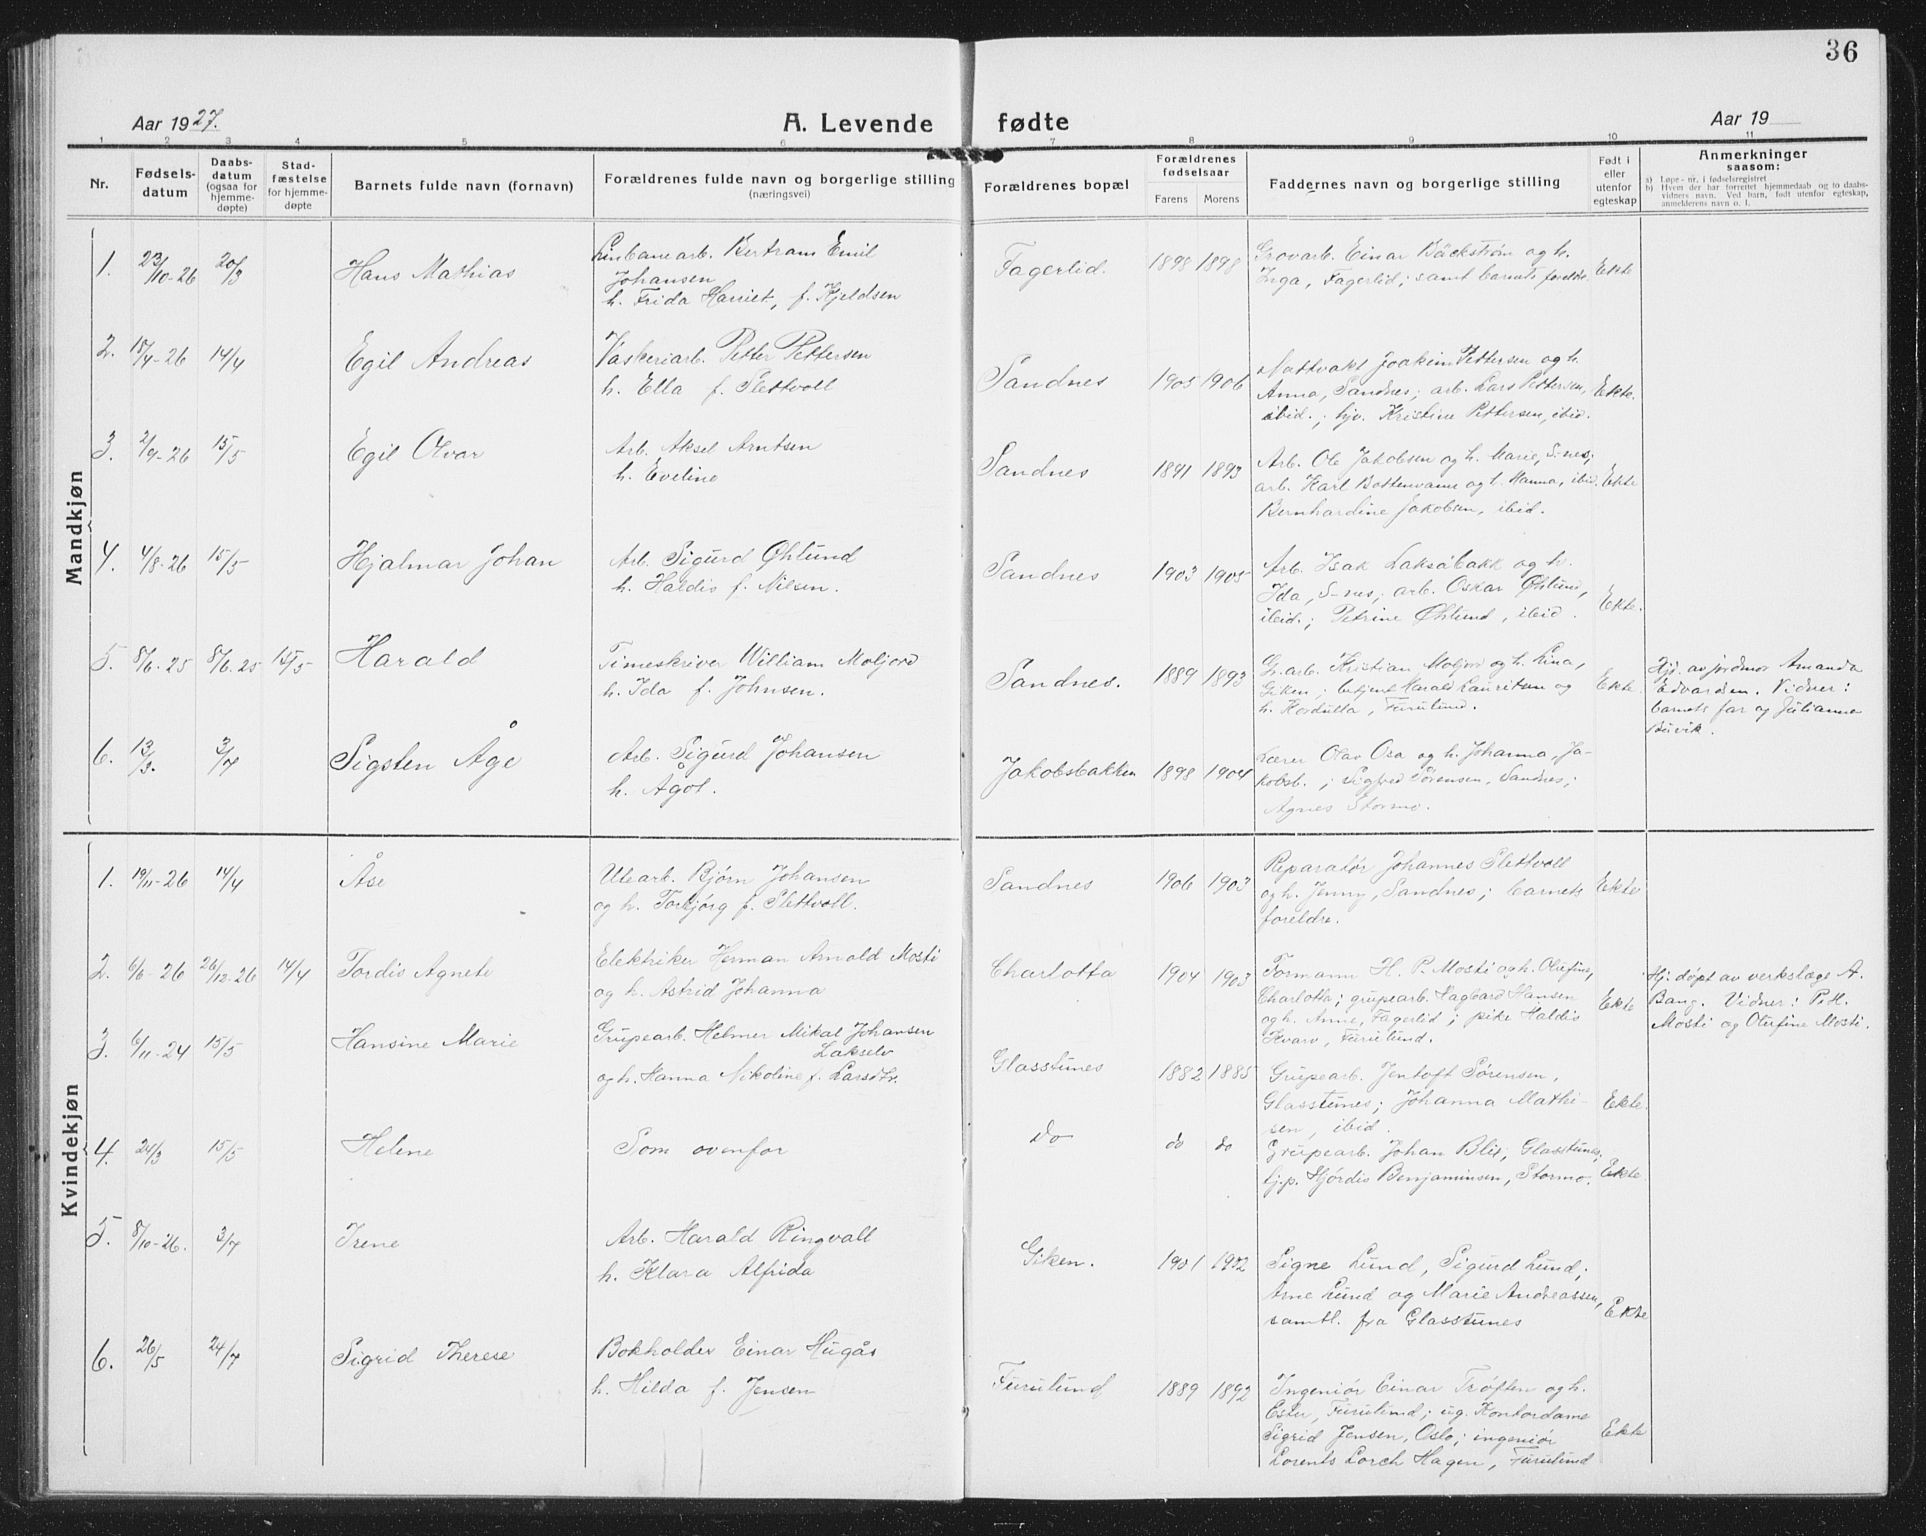 36
Aar 1927.
A. Levende fødte
Aar 19
1 2 3 4 5 6 7 8 9 10 11
Nr.
Fødsels-
datum
Daabs-
datum
(ogsaa for
hjemme-
døpte)
Stad-
fæstelse
for hjemme-
døpte
Barnets fulde navn (fornavn)
Forældrenes fulde navn og borgerlige stilling
(næringsvei)
Forældrenes bopæl
Forældrenes
fødselsaar
Farens Morens
Faddernes navn og borgerlige stilling
Født i
eller
utenfor
egteskap
Anmerkninger
saasom:
a) Løpe-nr. i fødselsregistret
b) Hvem der har forrettet hjemmedaab og to daabs-
vidners navn. Ved barn, født utenfor egteskap,
anmelderens navn o. l.
Mandkjøn
1. 23/10-26 20/3 Hans Mathias
Linbanearb. Bertram Emil
Johansen
h. Frida Harriet, f. Kjeldsen
Fagerlid. 1898 1898
Grovarb. Einar Bäckstrøm og h.
Inga, Fagerlid; samt barnets foreldre.
Ekte
2. 15/4-26 14/4 Egil Andreas
Vaskeriarb. Petter Pettersen
h. Ella f. Slettvoll
Sandnes 1905 1906
Nattvakt Joakim Pettersen og h.
Anna, Sandnes; arb. Lars Pettersen,
ibid.; hjv. Kristine Pettersen, ibid.
Ekte.
3. 2/9-26 15/5 Egil Olvar
Arb. Aksel Arntsen
h. Eveline
Sandnes 1891 1893
Arb. Ole Jakobsen og h. Marie, S-nes;
arb. Karl Bottenvann og h. Hanna, ibid.
Bernhardine Jakobsen, ibid.
Ekte
4. 4/8-26 15/5 Hjalmar Johan
Arb. Sigurd Øhlund
h. Haldis f. Nilsen.
Sandnes 1903 1905
Arb. Isak Laksåbakk og h.
Ida, S-nes; arb. Oskar Øhlund,
ibid.; Petrine Øhlund, ibid.
Ekte.
5. 8/6-25 8/6-25 15/5 Harald
Timeskriver William Moljord
h. Ida f. Johnsen.
Sandnes. 1889 1893
Gr.arb. Kristian Moljord og h. Lina,
Giken; betjent Harald Lauritsen og
h. Kordulla, Furulund.
Ekte.
Hj. av jordmor Amanda
Edvardsen. Vidner:
barnets far og Julianne
Buvik.
6. 13/3. 3/7 Sigsten Åge
Arb. Sigurd Johansen
h. Ågot.
Jakobsbakken 1898 1904
Lærer Olav Osa og h. Johanna, Ja-
kobsb.; Sigfred Sørensen, Sandnes;
Agnes Stormo.
Kvindekjøn
1. 19/11-26 14/4 Åse
Utearb. Bjørn Johansen
og h. Torbjørg f. Slettvoll.
Sandnes 1906 1903
Reparatør Johannes Slettvoll
og h. Jenny, Sandnes; barnets
foreldre.
Ekte
2. 6/6-26 26/12-26 14/4 Tordis Agnete
Elektriker Herman Arnold Mosti
og h. Astrid Johanna
Charlotta 1904 1903
Formann H. P. Mosti og h. Olufine,
Charlotta; grupearb. Hagbard Hansen
og h. Anne, Fagerlid; pike Haldis
Kvarv, Furulund.
Ekte
Hj. døpt av verkslæge A.
Bang. Vidner: P. H.
Mosti og Olufine Mosti.
3. 6/11-24 15/5 Hansine Marie
Grupearb. Helmer Mikal Johansen
Lakselv
og h. Hanna Nikoline f. Larsdtr.
Glasstunes 1882 1885
Grupearb. Jentoft Sørensen,
Glasstunes; Johanna Mathi-
sen, ibid.
Ekte.
4. 24/3 15/5 Helene
Som ovenfor
do do do
Grupearb. Johan Blix, Glasstunes;
tj.p. Hjørdis Benjaminsen, Stormo.
Ekte
5. 8/10-26. 3/7 Irene
Arb. Harald Ringvall
h. Klara Alfrida
Giken. 1901 1902
Signe Lund, Sigurd Lund;
Arne Lund og Marie Andreassen,
samtl. fra Glasstunes
Ekte
6. 26/5 24/7 Sigrid Therese
Bokholder Einar Hugås
h. Hilda f. Jensen
Furulund 1889 1892
Ingeniør Einar Trøften og h.
Ester, Furulund; ug. Kontordame
Sigrid Jensen, Oslo; ingeniør
Lorents Lorch Hagen, Furulund
Ekte